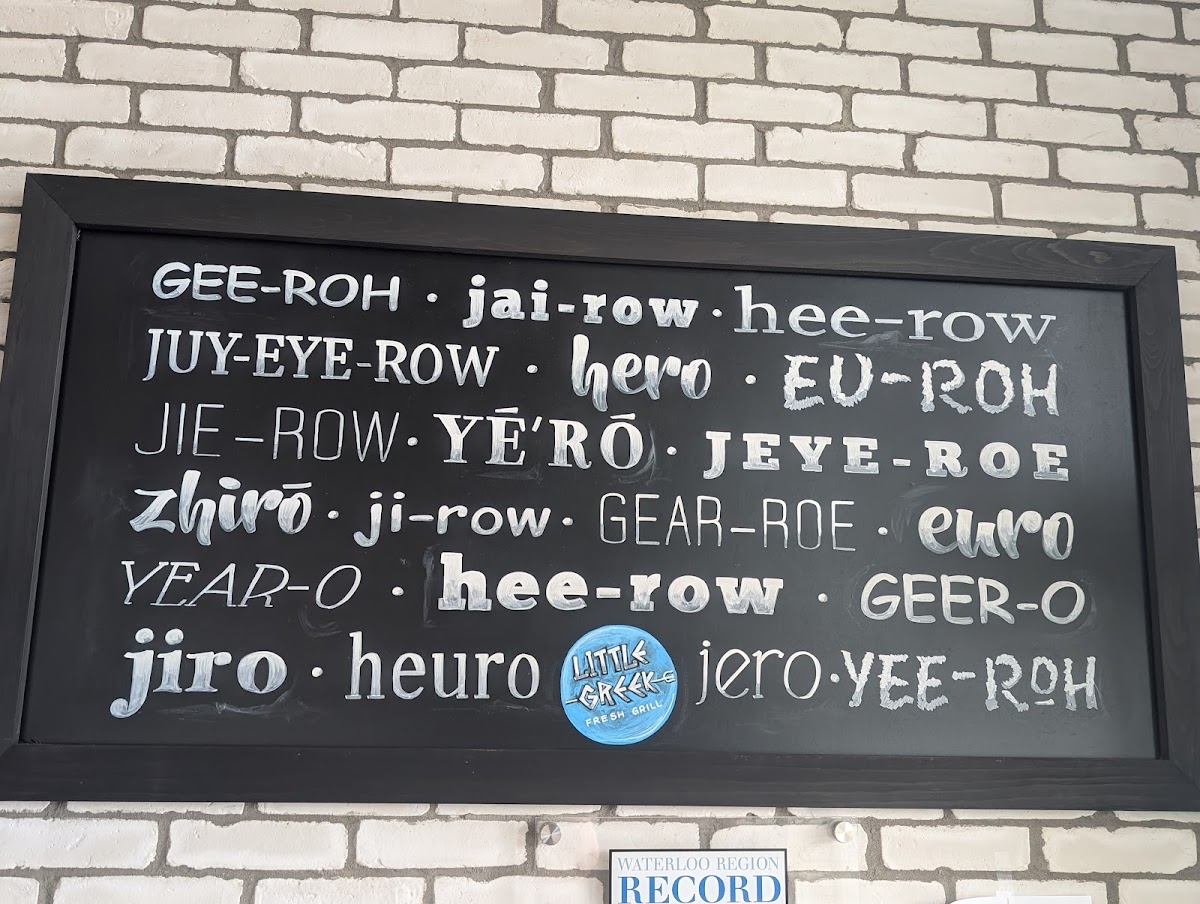 GEE-ROH · jai-row · hee-row
JUY-EYE-ROW · hero · EU-ROH
JIE-ROW · YÉ'RŌ · JEYE-ROE
zhirō · ji-row · GEAR-ROE · euro
YEAR-O · hee-row · GEER-O
jiro · heuro
LITTLE
GREEK
FRESH GRILL
jero · YEE-ROH
WATERLOO REGION
RECORD